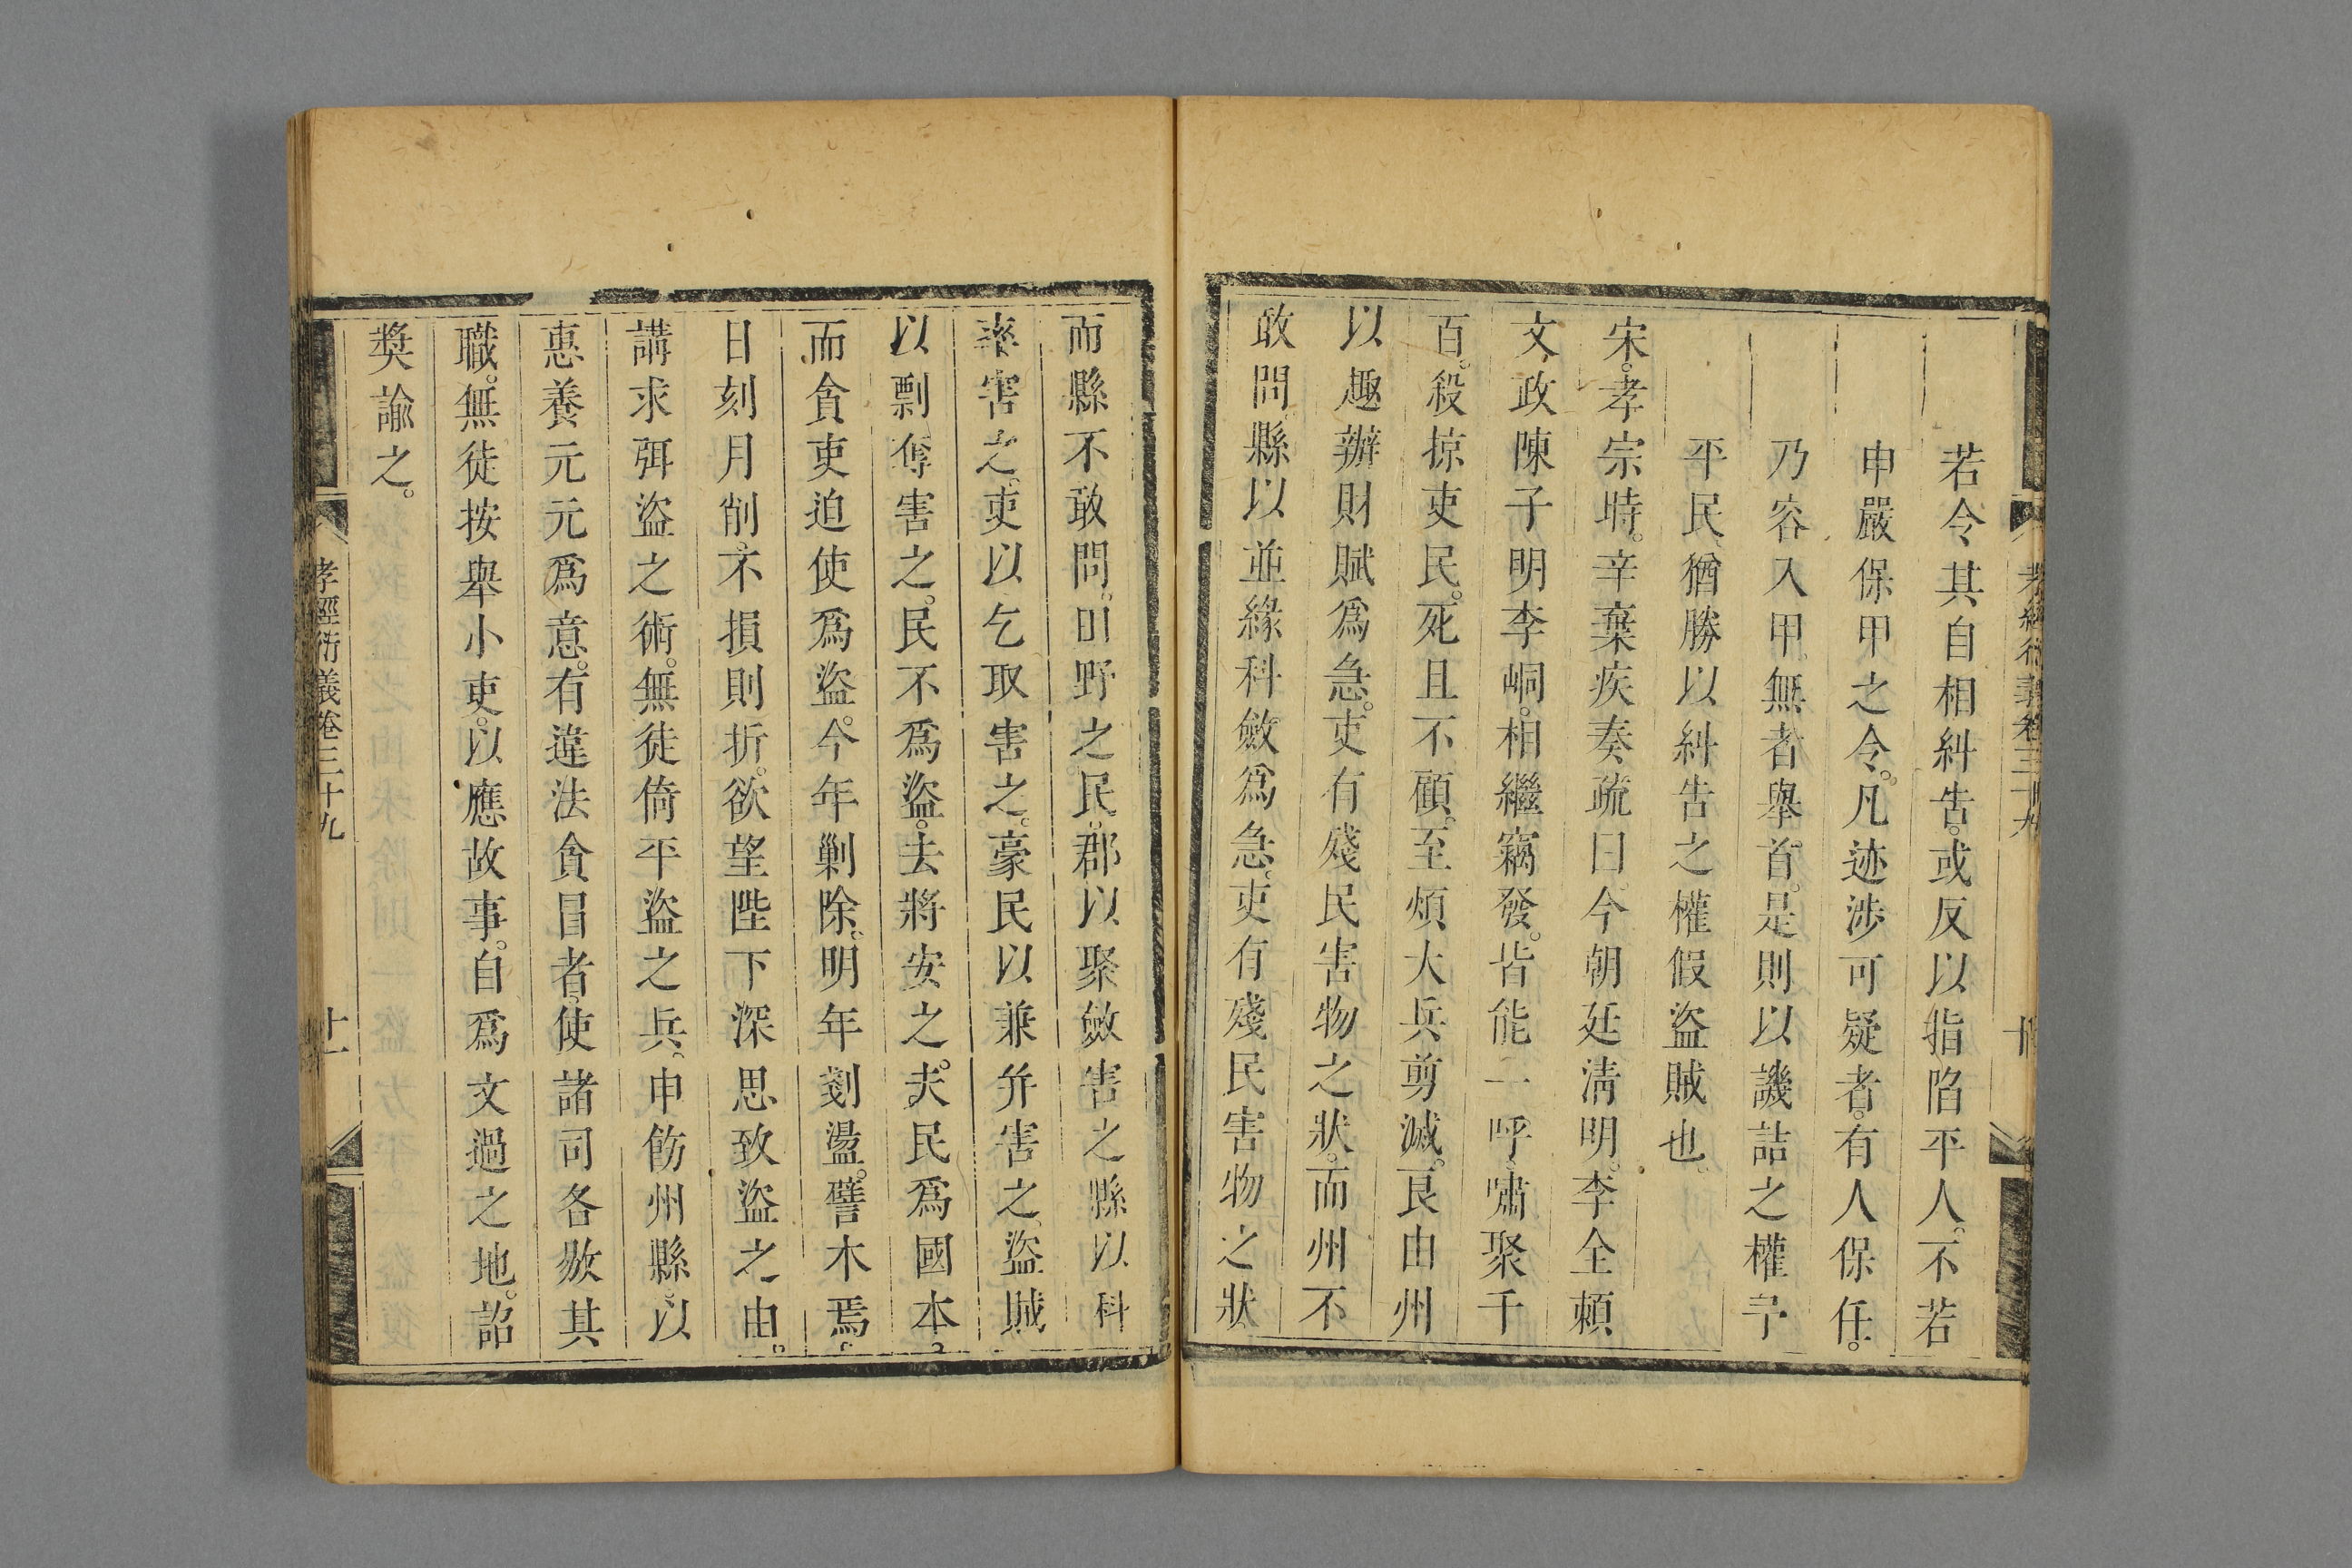 若令其自相糾告。或反以指陷平人。不若
申嚴保甲之令。凡迹涉可疑者。有人保任。
乃容入甲。無者舉首。是則以譏詰之權予
平民。猶勝以糾告之權假盜賊也。
宋。孝宗時。辛棄疾奏疏曰。今朝廷淸明。李全賴
文政陳子明李峒。相繼竊發。皆能一呼嘯聚千
百。殺掠吏民。死且不顧。至煩大兵剪滅。良由州
以趣辦財賦爲急。吏有殘民害物之狀。而州不
敢問。縣以並緣科斂爲急。吏有殘民害物之狀
而縣不敢問。田野之民。郡以聚斂害之。縣以科
率害之。吏以乞取害之。豪民以兼并害之。盜賊
以剽奪害之。民不爲盜。去將安之。夫民爲國本。
而貪吏迫使爲盜。今年剿除。明年剗盪。譬木焉。
日刻月削。不損則折。欲望陛下深思致盜之由。
講求弭盜之術。無徒倚平盜之兵。申飭州縣。以
惠養元元爲意。有違法貪冒者。使諸司各敭其
職。無徒按舉小吏。以應故事。自爲文過之地。詔
奬諭之。
孝經衍義卷三十九
十一